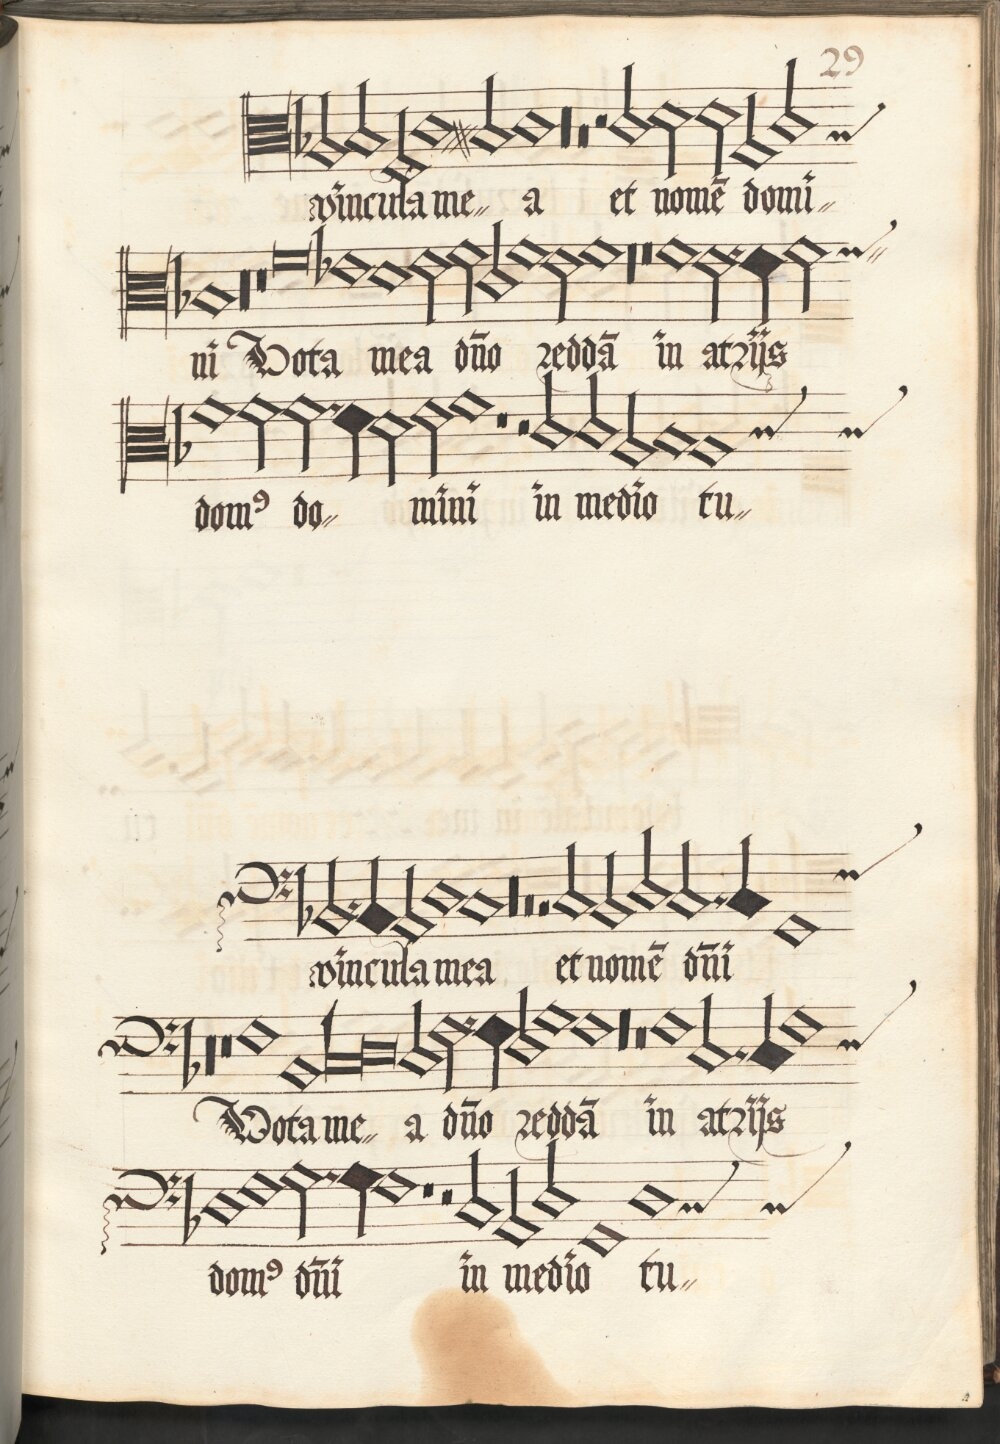 29
vincula me〃 a et nomē domi〃
ni Vota mea dn̄o reddā in atrijs
domꝰ do〃 mini in medio tu〃
vincula mea et nomē dn̄i
Vota me〃 a dn̄o reddā in atrijs
domꝰ dn̄i in medio tu〃